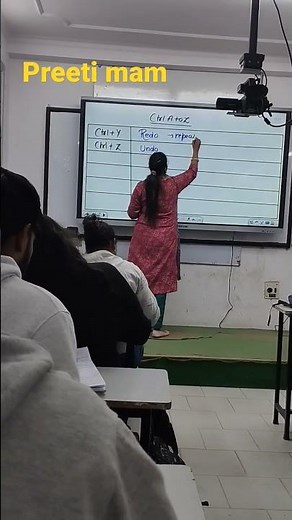 Preeti mam
Ctrl A to Z
Ctrl + Y Redo → repea
Ctrl + Z Undo